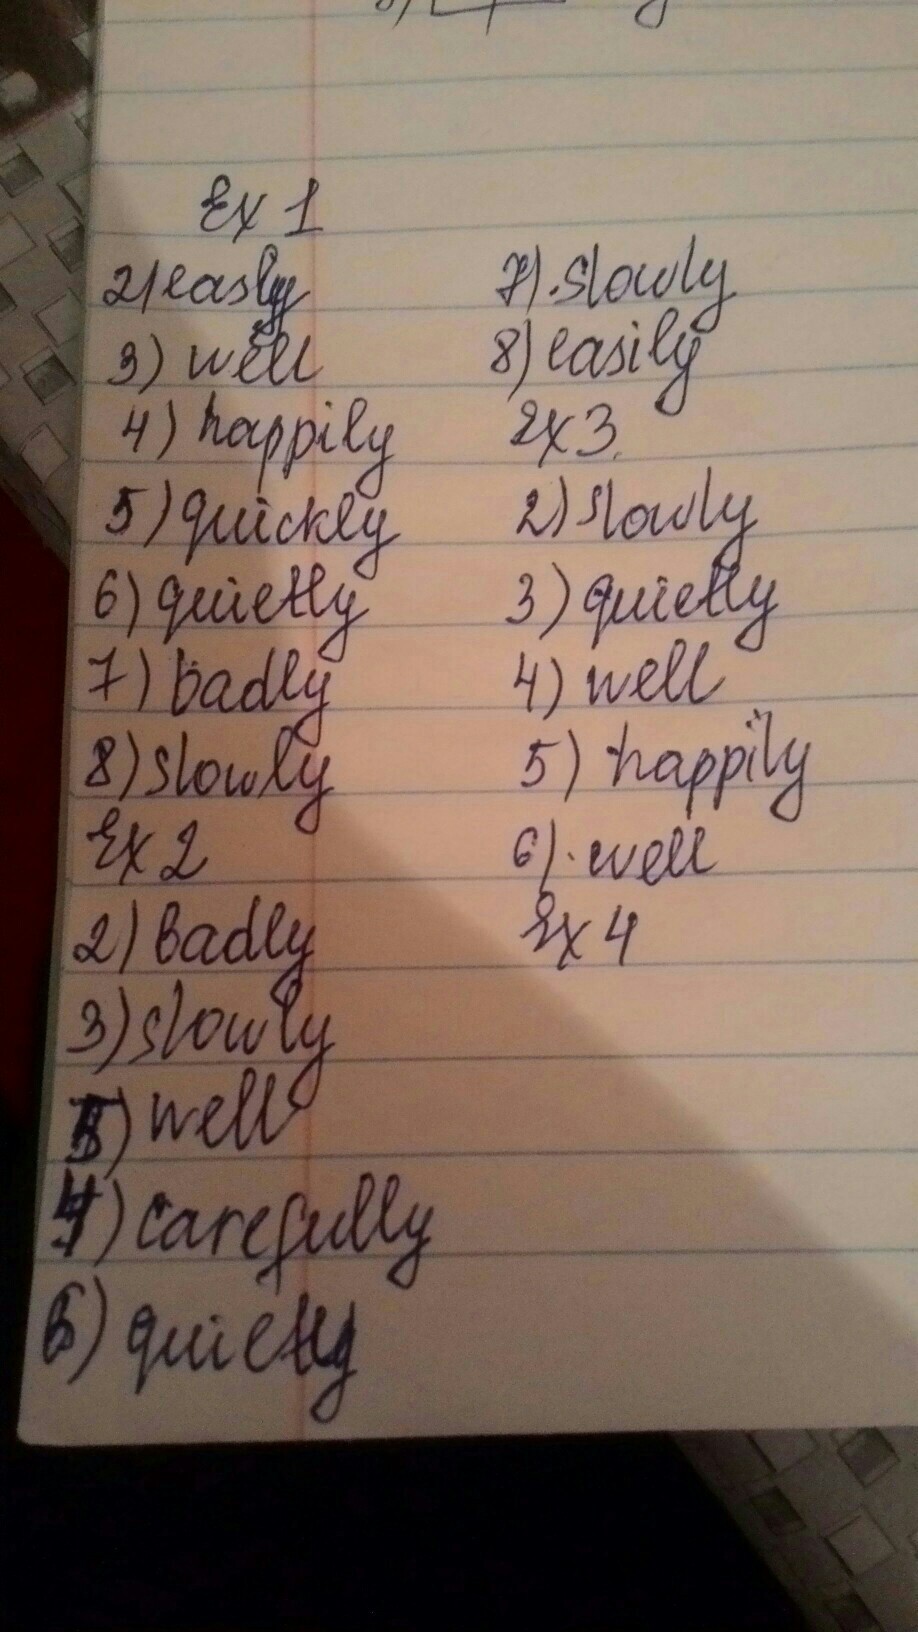 Ex 1
2) easly
3) well
4) happily
5) quickly
6) quietly
7) badly
8) slowly
Ex 2
2) badly
3) slowly
5) well
4) carefully
6) quietly
7) slowly
8) easily
Ex 3.
2) slowly
3) quietly
4) well
5) happily
6) well
Ex 4